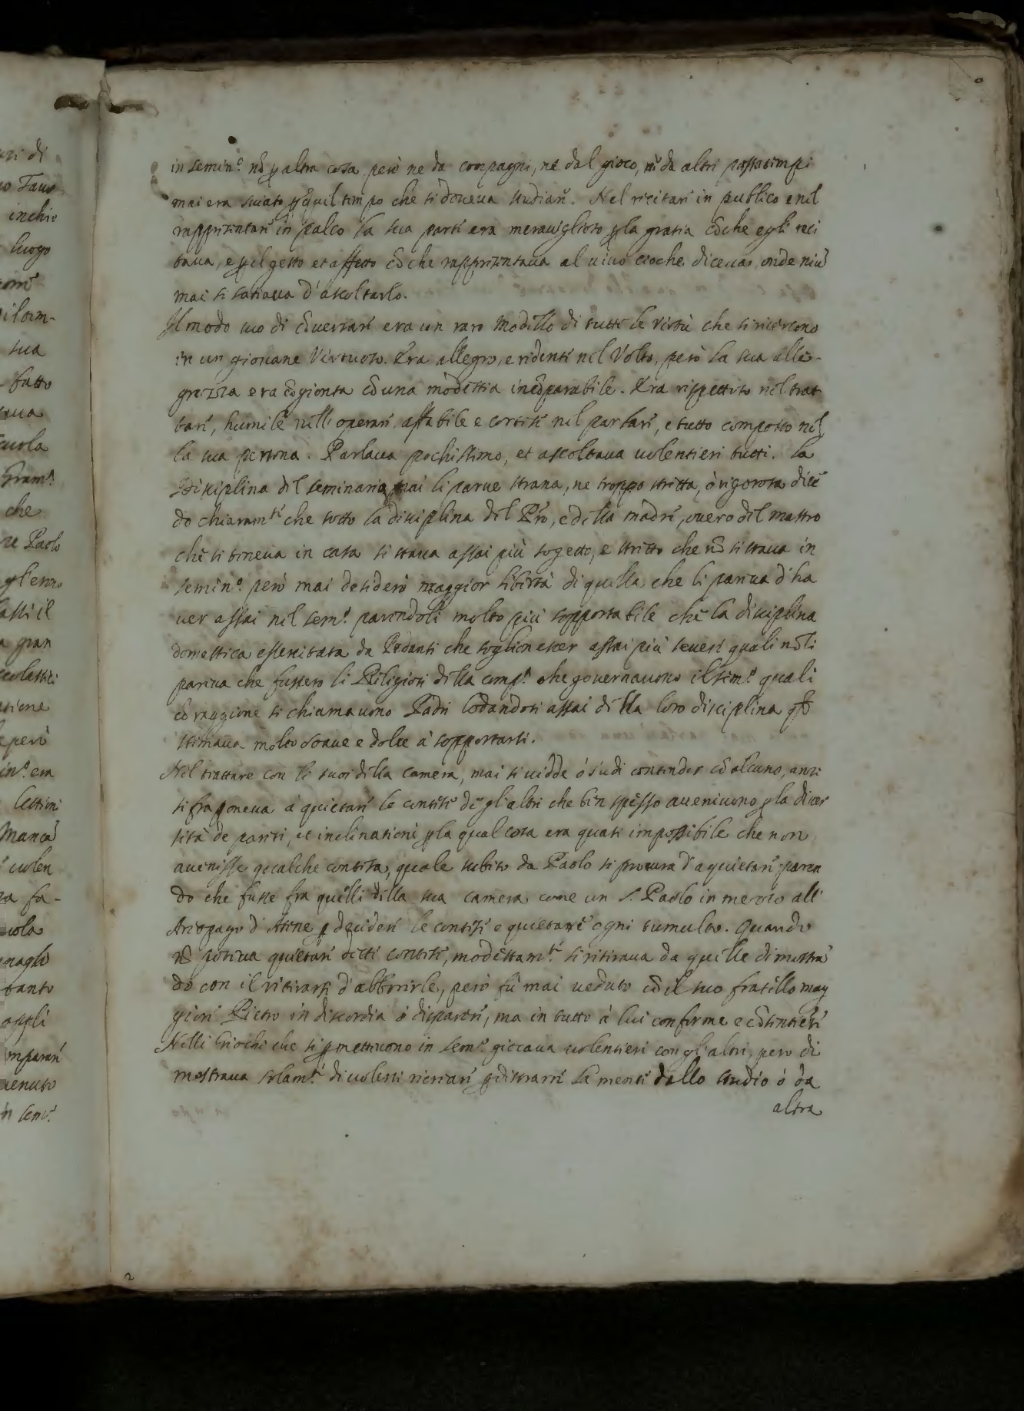 in semin.º nō ꝑ altra cosa, però ne da compagni, ne dal gioco, nè da altri passatempi
mai era suiato quel tempo che si doueua studiare. Nel recitare in publico e nel
rappresentare in palco la sua parte era merauiglioso ꝑ la gratia cō che egli reci
taua, e ꝑ il gesto et affetto cō che rappresentaua al uiuo cioche diceua, onde niū
mai si satiaua d'ascoltarlo.
Il modo suo di cōuersare era un raro modello di tutte le virtù che si ricercono
in un giouane Virtuoso. Era allegro, e ridente nel Volto, però la sua alle-
grezza era cōgionta cō una modestia incōparabile. Era rispettiuo nel trat
tare, humile nell' operare, affabile e cortese nel parlare, e tutto composto nel
la sua persona. Parlaua pochissimo, et ascoltaua uolentieri tutti. La
Disciplina del seminario mai li parue strana, ne troppo stretta, ò rigorosa dicē
do chiaram.te che sotto la disciplina del Pre, e della madre, ouero del mastro
che si teneua in casa si staua assai più sogetto, e stretto che nō si staua in
semin.º però mai desiderò maggior libertà di quella che li pareua d'ha
uer assai nel sem.º parendoli molto più sopportabile che la disciplina
domestica essercitata da Pedanti che soglion esser assai più seueri quali nō li
pareua che fussero li Religiosi della comp.ª che gouernauono il sem.º quali
cō raggione si chiamauono Padri lodandosi assai della loro disciplina
stimaua molto soaue e dolce à sopportarsi.
Nel trattare con li suoi della camera, mai si uidde ò s'udi contender cō alcuno, anzi
si fraponeua à quietare le contese de gl'altri che ben spesso aueniuono ꝑ la diuer
sità de pareri, et inclinationi ꝑ la qual cosa era quasi impossibile che non
auenisse qualche contesa, quale subito da Paolo si procuraua d'aquietare paren
do che fusse fra quelli della sua camera come un S. Paolo in mezzo all'
Ariopago d'Atene ꝑ decidere le contese e quietare ogni tumulto. Quando
nō poteua quietare dette contese, modestam.te si ritiraua da quelle dimostrā
do con il ritirarsi d'abborrirle, però fù mai ueduto cō il suo fratello mag
giore Pietro in discordia ò disparere, ma in tutto à lui conforme e cōsentiente
Nelli Giochi che si ꝑmetteuono in sem.º giocaua uolentieri con gl'altri, però di
mostraua solam.te di uolersi ricreare, e distrarre la mente dallo studio ò da
altra